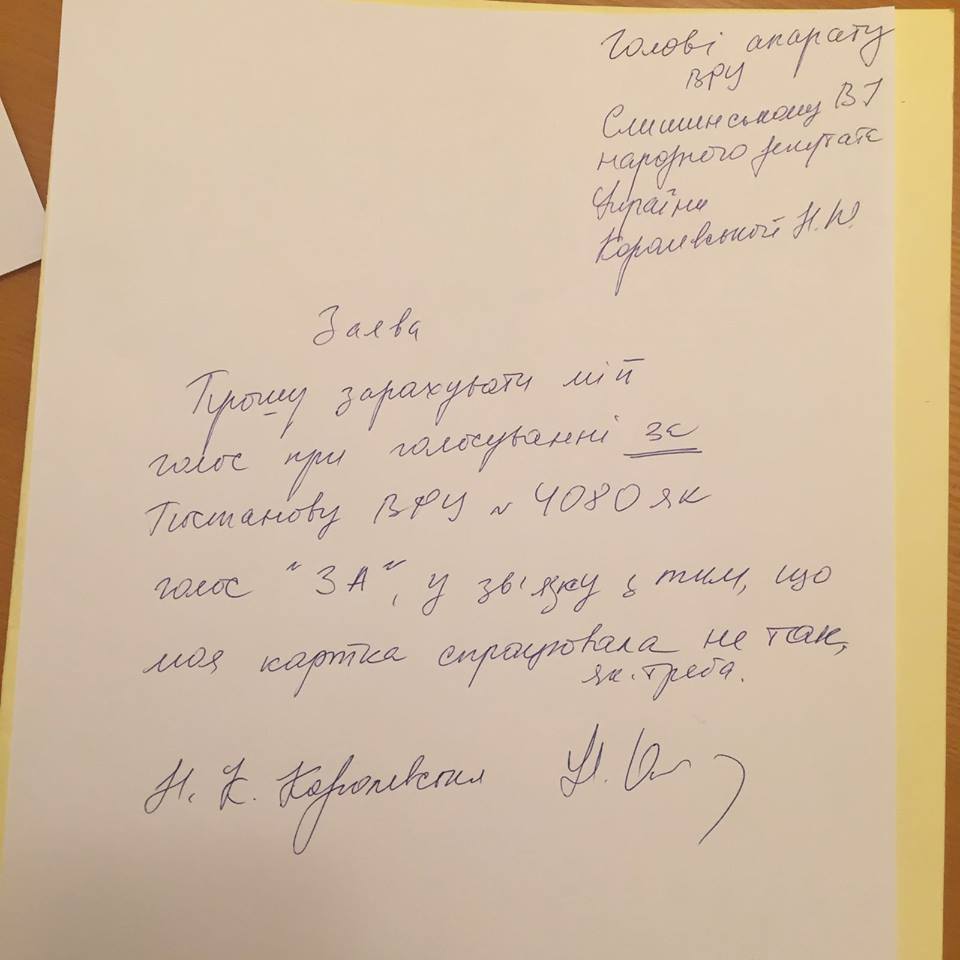 Голові апарату
ВРУ
Слишинському ВІ
народного депутата
України
Королевської Н.Ю.
Заява
Прошу зарахувати мій
голос при голосуванні за
Постанову ВРУ № 4080 як
голос "ЗА", у зв'язку з тим, що
моя картка спрацювала не так,
як треба.
Н. К. Королевская